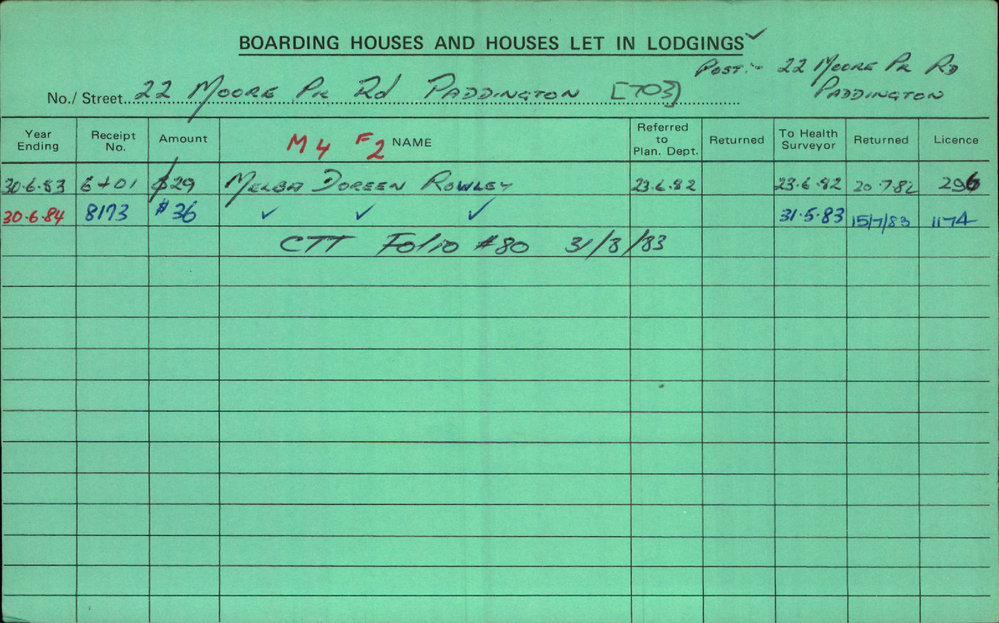 BOARDING HOUSES AND HOUSES LET IN LODGINGS ✓
POST:- 22 MOORE PK RD
PADDINGTON
No./Street 22 MOORE PK Rd PADDINGTON [703]
Year Ending Receipt No. Amount M 4 F 2 NAME Referred to Plan. Dept. Returned To Health Surveyor Returned Licence
30.6.83 $29 MELBA DOREEN ROWLEY 23.6.82 23.6.82 20.7.82 296
30.6.84 8173 $36 ✓ ✓ ✓ 31.5.83 15/7/83 1174
CTT Folio #80 31/3/83